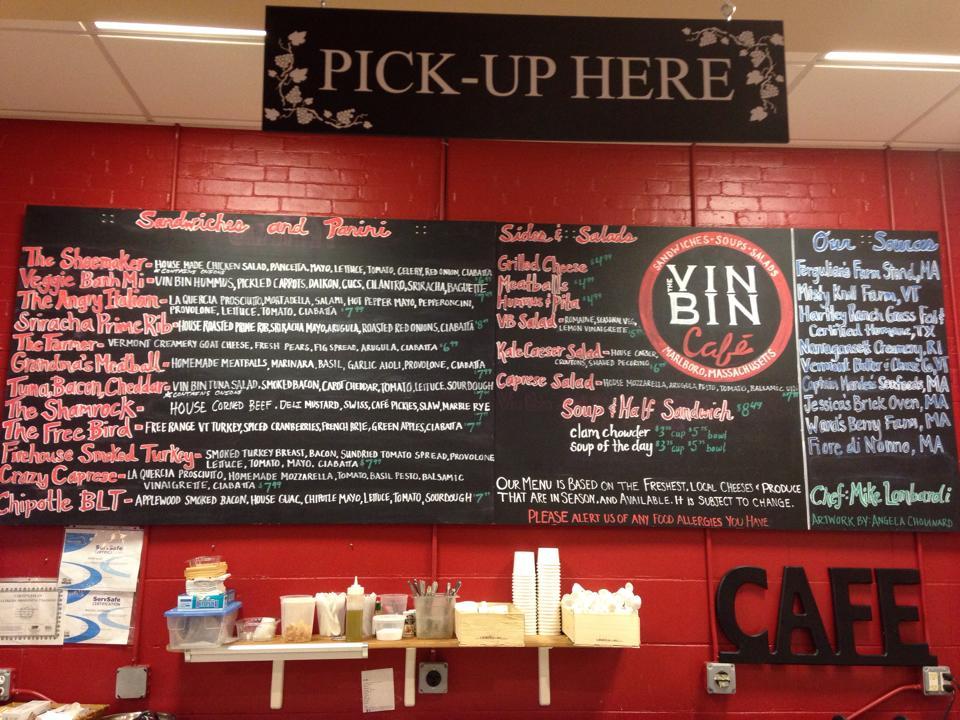 PICK-UP HERE
Sandwiches and Panini
The Shoemaker- HOUSE MADE CHICKEN SALAD, PANCETTA, MAYO, LETTUCE, TOMATO, CELERY, RED ONION, CIABATTA
* CONTAINS ONIONS
Veggie Banh Mi- VIN BIN HUMMUS, PICKLED CARROTS, DAIKON, CUCS, CILANTRO, SRIRACHA, BAGUETTE
The Angry Italian- LA QUERCIA PROSCIUTTO, MORTADELLA, SALAMI, HOT PEPPER MAYO, PEPPERONCINI,
PROVOLONE, LETTUCE, TOMATO, CIABATTA $7.99
Sriracha Prime Rib- HOUSE ROASTED PRIME RIB, SRIRACHA MAYO, ARUGULA, ROASTED RED ONIONS, CIABATTA
The Farmer- VERMONT CREAMERY GOAT CHEESE, FRESH PEARS, FIG SPREAD, ARUGULA, CIABATTA $6.99
Grandma's Meatball- HOMEMADE MEATBALLS, MARINARA, BASIL, GARLIC AIOLI, PROVOLONE, CIABATTA
Tuna, Bacon, Cheddar- VIN BIN TUNA SALAD, SMOKED BACON, CABOT CHEDDAR, TOMATO, LETTUCE, SOURDOUGH
* CONTAINS ONIONS
The Shamrock- HOUSE CORNED BEEF, DELI MUSTARD, SWISS, CAFÉ PICKLES, SLAW, MARBLE RYE
The Free Bird- FREE RANGE VT TURKEY, SPICED CRANBERRIES, FRENCH BRIE, GREEN APPLES, CIABATTA
Firehouse Smoked Turkey- SMOKED TURKEY BREAST, BACON, SUNDRIED TOMATO SPREAD, PROVOLONE
LETTUCE, TOMATO, MAYO, CIABATTA $7.99
Crazy Caprese- LA QUERCIA PROSCIUTTO, HOMEMADE MOZZARELLA, TOMATO, BASIL PESTO, BALSAMIC
VINAIGRETTE, CIABATTA $7.99
Chipotle BLT- APPLEWOOD SMOKED BACON, HOUSE GUAC, CHIPOTLE MAYO, LETTUCE, TOMATO, SOURDOUGH
Sides & Salads
Grilled Cheese $4.99
Meatballs $4.99
Hummus & Pita
VB Salad- ROMAINE, SEASONAL VEG,
LEMON VINAIGRETTE
Kale Caesar Salad- HOUSE CAESAR,
CROUTONS, SHAVED PECORINO
Caprese Salad- HOUSE MOZZARELLA, ARUGULA, PESTO, TOMATO, BALSAMIC
Soup & Half Sandwich $8.49
clam chowder cup bowl
soup of the day cup bowl
OUR MENU IS BASED ON THE FRESHEST, LOCAL CHEESES & PRODUCE
THAT ARE IN SEASON AND AVAILABLE. IT IS SUBJECT TO CHANGE.
PLEASE ALERT US OF ANY FOOD ALLERGIES YOU HAVE
SANDWICHES • SOUPS • SALADS
THE
VIN
BIN
Café
MARLBORO, MASSACHUSETTS
Our Sources
Ferguson's Farm Stand, MA
Misty Knoll Farm, VT
Hartley Ranch Grass Fed &
Certified Humane, TX
Narragansett Creamery, RI
Vermont Butter & Cheese Co, VT
Captain Seafoods, MA
Jessica's Brick Oven, MA
Wards Berry Farm, MA
Fiore di Nonno, MA
Chef: Mike Lombardi
ARTWORK BY: ANGELA CHOUINARD
ServSafe
ServSafe
CERTIFICATION
CAFE